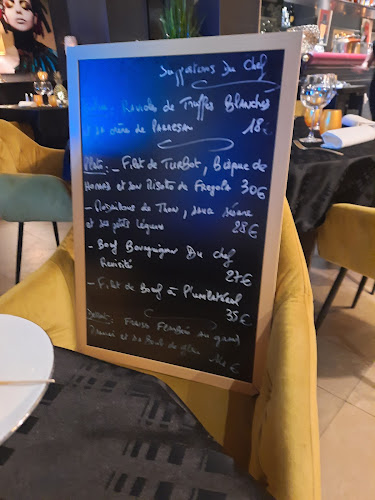 Suggestions Du Chef
Entrée: Raviolle de Truffes Blanches
et sa crème de Parmesan 18€
Plats: - Filet de Turbot, Bisque de
Homard et son Risoto de Fregola 30€
- de Thon, sauce
et ses petits légumes 28€
- Boeuf Bourguignon Du chef
Revisité 27€
- Filet de Boeuf à 35€
Dessert: Fraise au grand
et sa Boule de glace 14€